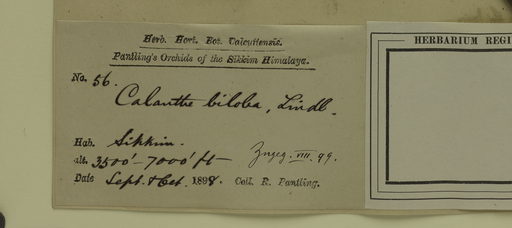 Herb. Hort. Bot. Calcuttensis.
Pantling's Orchids of the Sikkim Himalaya.
No. 56.
Calanthe biloba, Lindl.
Hab. Sikkim.
alt. 3500'-7000' ft—
Zugeg. VIII. 99.
Date Sept. & Oct. 1898. Coll. R. Pantling.
HERBARIUM REGI